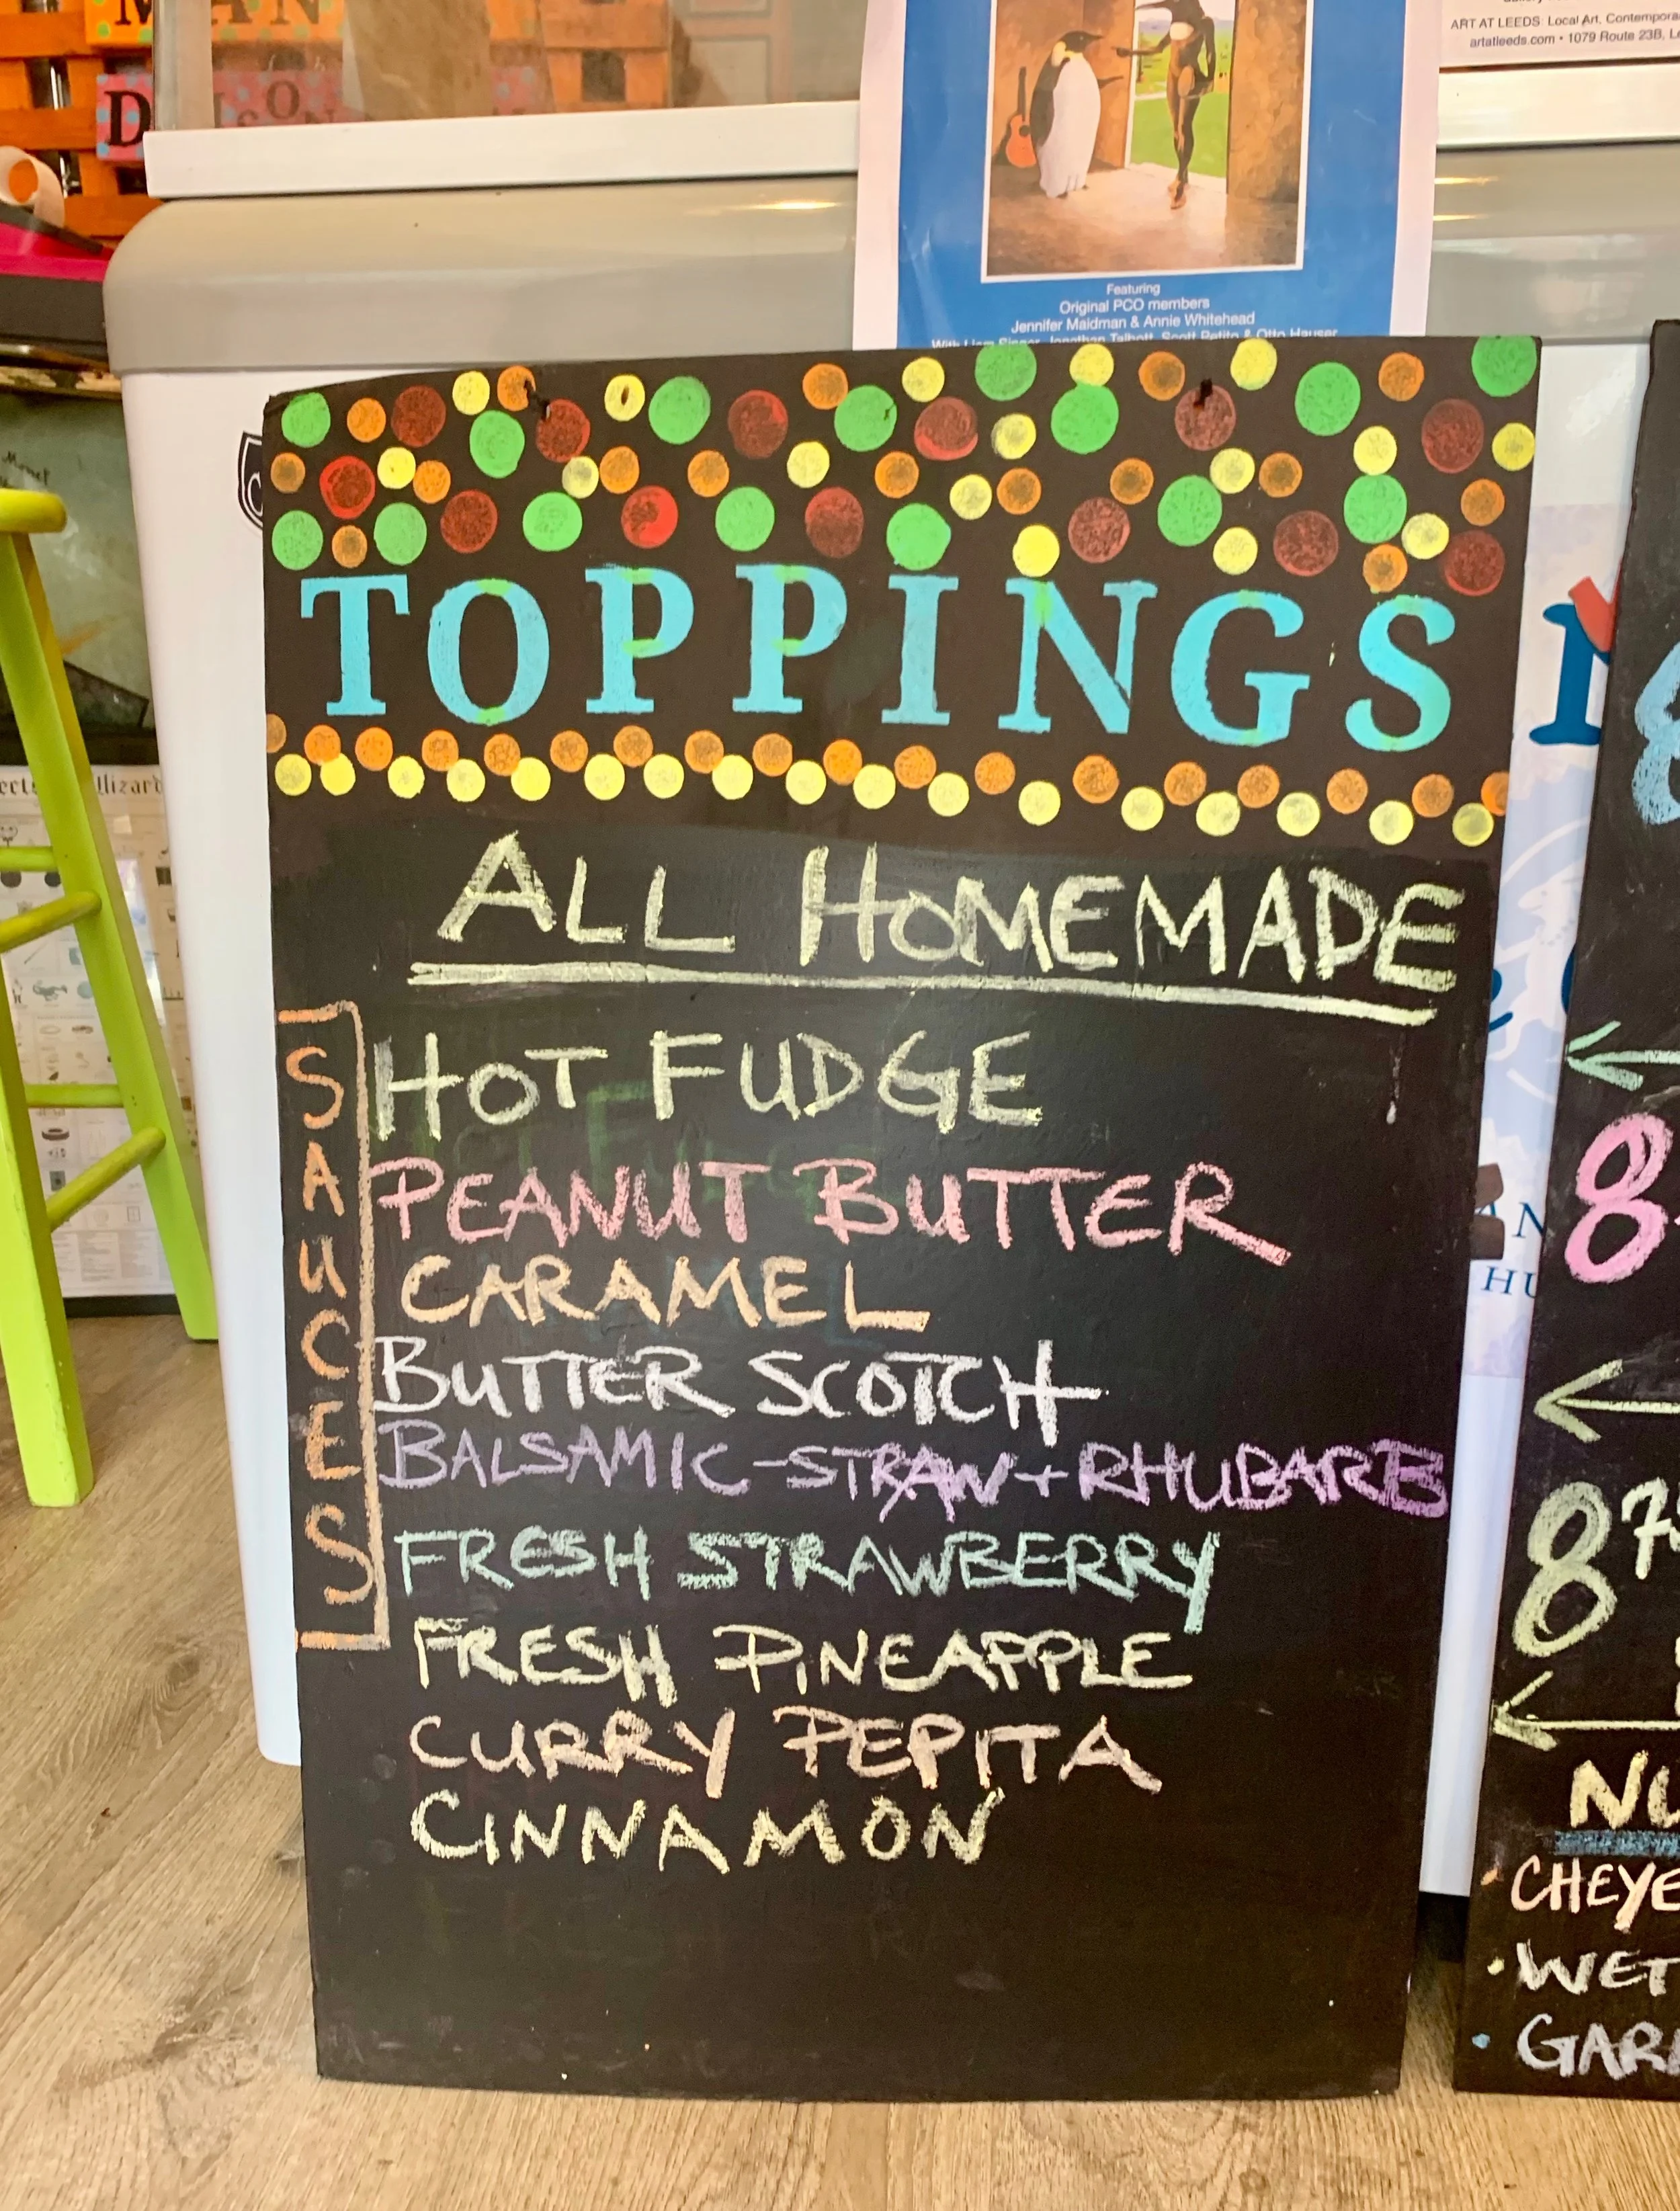 MAN
D
SON
ART AT LEEDS: Local Art, Contempora
artatleeds.com • 1079 Route 23B, Le
Featuring
Original PCO members
Jennifer Maidman & Annie Whitehead
With Liam Singer, Jonathan Talbott, Scott Petito & Otto Hauser
TOPPINGS
ALL HOMEMADE
SAUCES
HOT FUDGE
PEANUT BUTTER
CARAMEL
BUTTER SCOTCH
BALSAMIC-STRAW+RHUBARB
FRESH STRAWBERRY
FRESH PINEAPPLE
CURRY PEPITA
CINNAMON
8
8
NU
• CHEYE
• WET
• GAR
HU